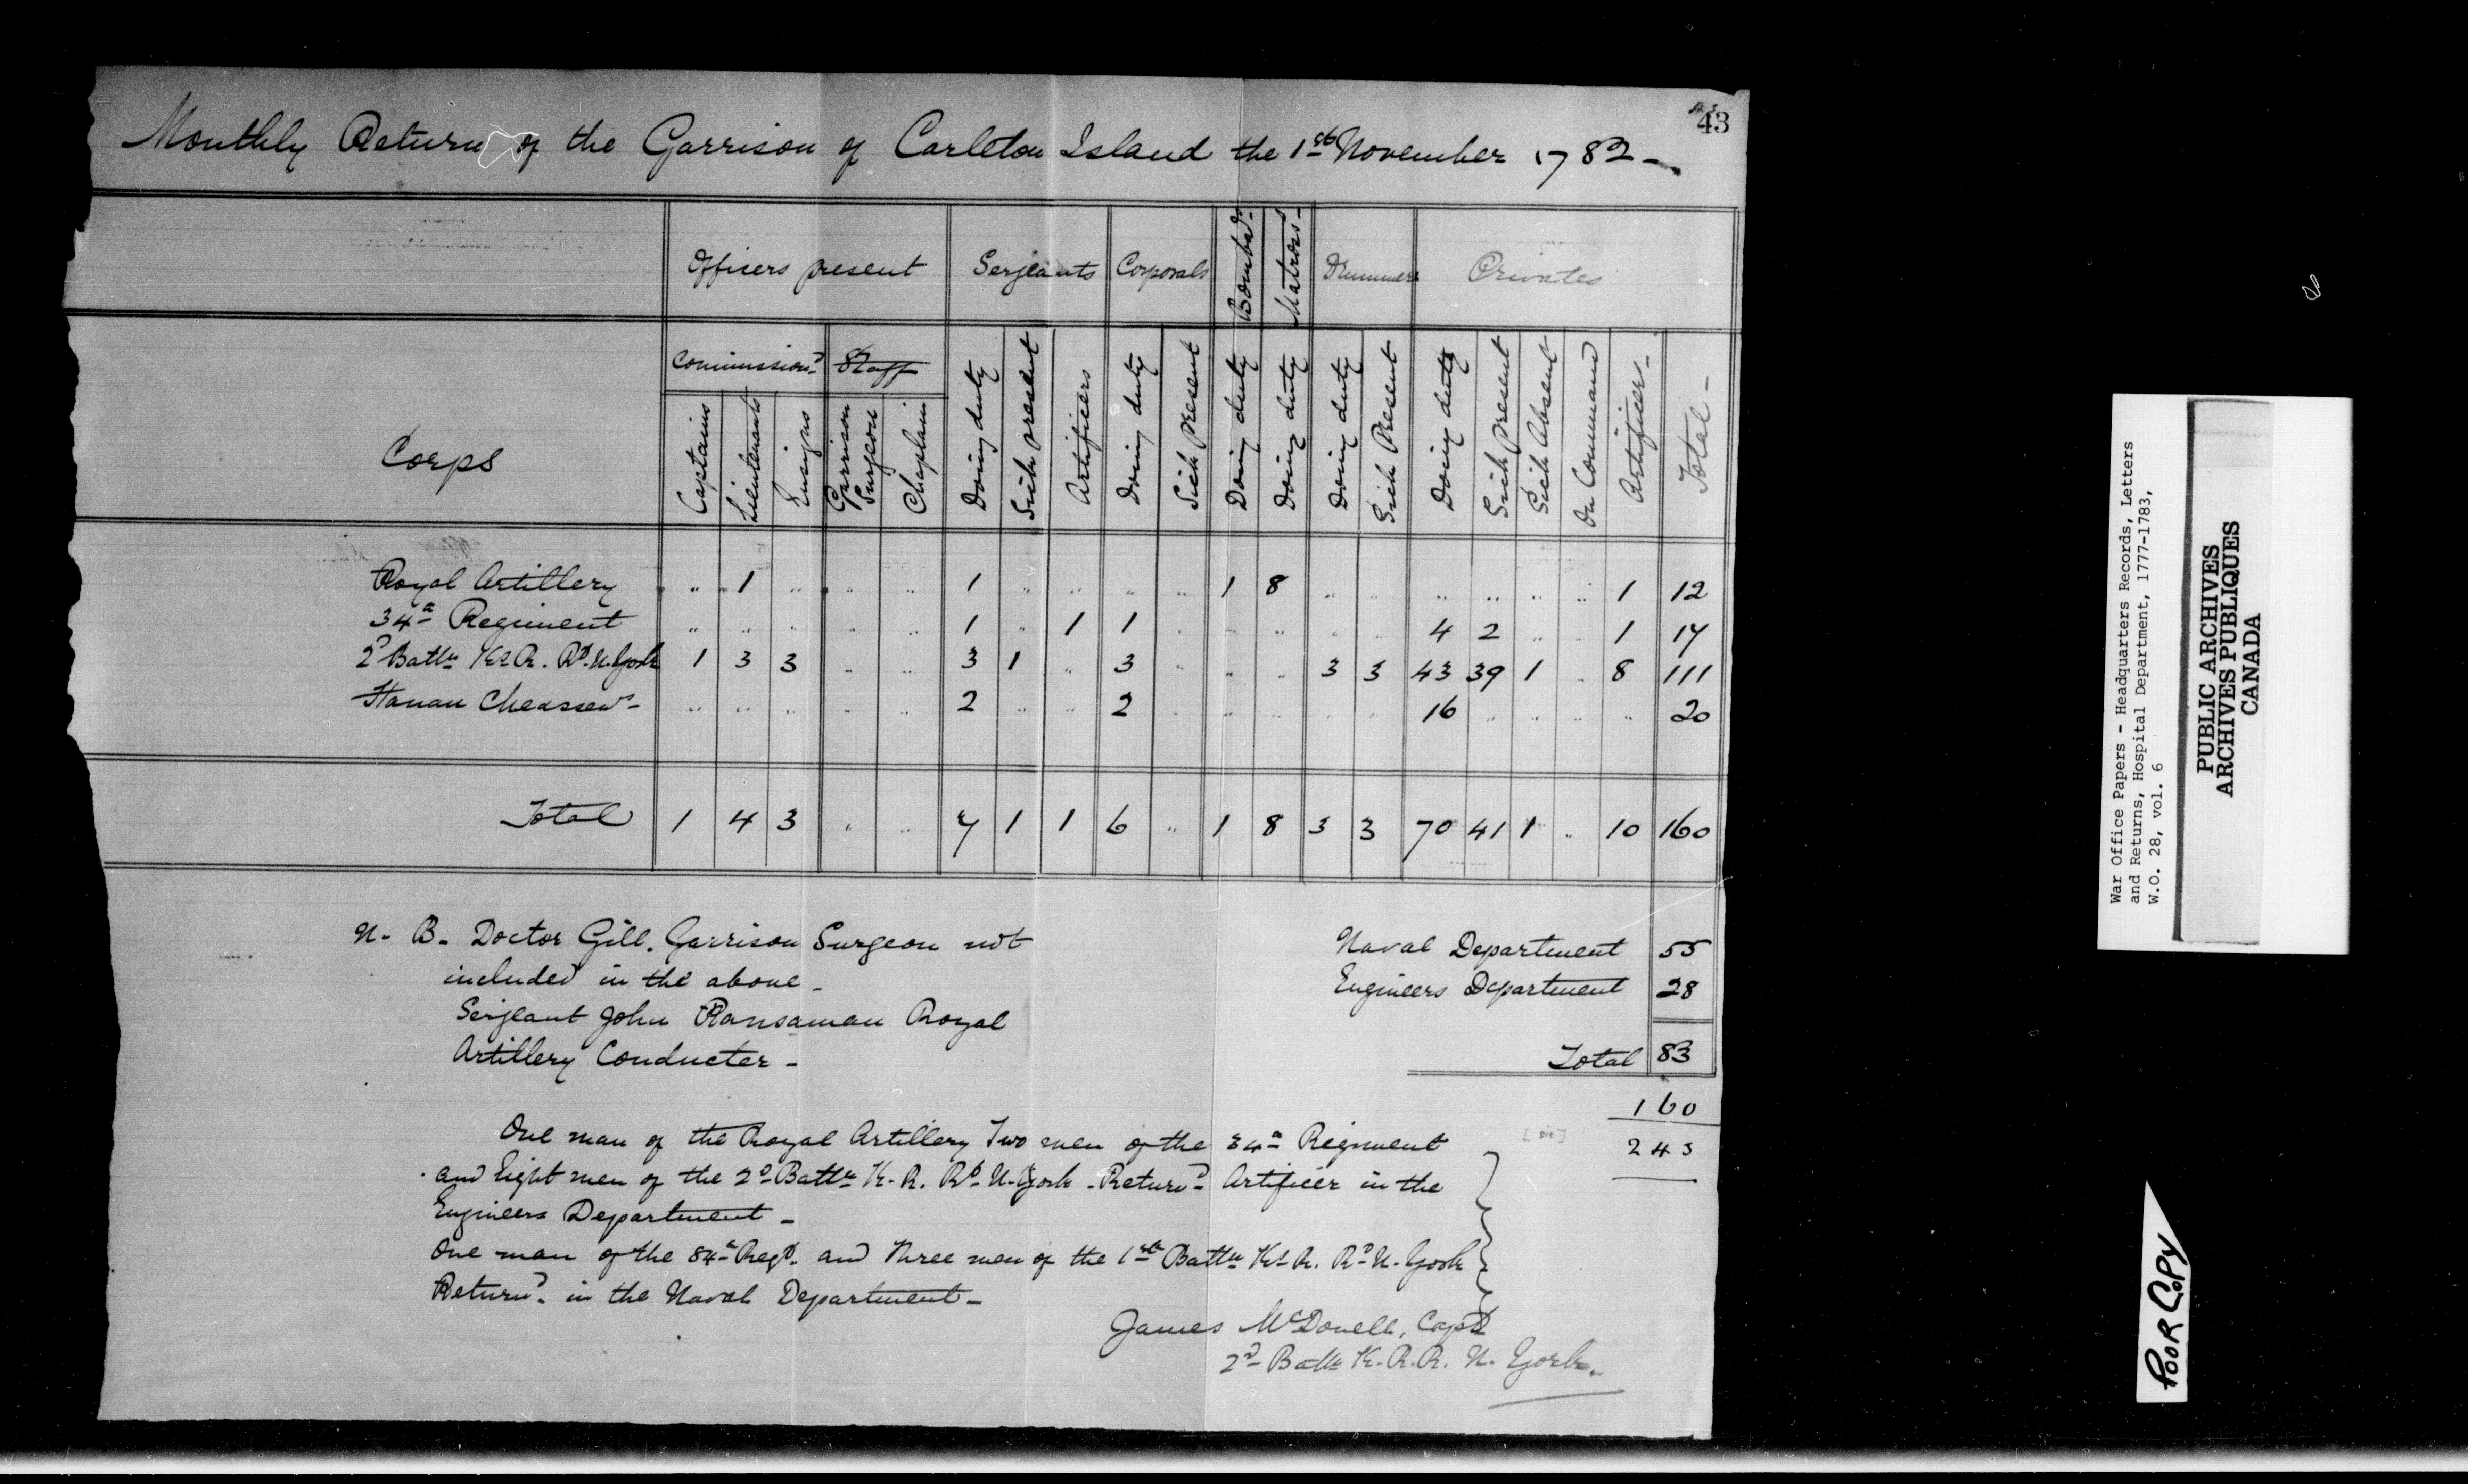 43
Monthly Return of the Garrison of Carleton Island the 1st November 1782 -
Officers present Serjeants Corporals Bombdrs. Matross - Drummers Privates
Commissiond. Staff
Corps Captains Lieutenants Ensigns Garrison Surgeon Chaplain Doing duty Sick present Artificers Doing duty Sick Present Doing duty Doing duty Doing duty Sick Present Doing duty Sick Present Sick Absent On Command Artificers - Total -
Royal Artillery " 1 " " " 1 " " " " 1 8 " " " " " " 1 12
34th Regiment " " " " " 1 " 1 1 " " " " " 4 2 " " 1 17
2d Battn Ks R. Rt. N. York 1 3 3 " " 3 1 " 3 " " " 3 3 43 39 1 " 8 111
Hanau Cheassrs - " " " " " 2 " " 2 " " " " " 16 " " " " 20
Total 1 4 3 " " 7 1 1 6 " 1 8 3 3 70 41 1 " 10 160
N. B. Doctor Gill. Garrison Surgeon not
included in the above -
Serjeant John Ransaman Royal
Artillery Conducter -
Naval Department 55
Engineers Department 28
Total 83
160
243
One man of the Royal Artillery Two men of the 34th Regiment
and Eight men of the 2d Battn K. R. Rt. N. York - Returnd. Artificer in the
Engineers Department -
One man of the 84th Regt. and Three men of the 1st Battn Ks R. Rt. N. York
Returnd. in the Naval Department -
James McDonell, Capt
2d Battn K. R. R. N. York.
War Office Papers - Headquarters Records, Letters
and Returns, Hospital Department, 1777-1783,
W.O. 28, vol. 6
PUBLIC ARCHIVES
ARCHIVES PUBLIQUES
CANADA
POOR COPY